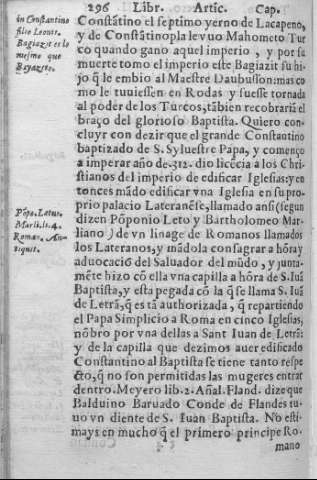 296 Libr. Artic. Cap.
in Constantino
filio Leonis.
Bagiazit es lo
mesmo que
Bayazeto.
Constãtino el septimo yerno de Lacapeno,
y de Constãtinopla le vuo Mahometo Tur
co quando gano aquel imperio, y por su
muerte tomo el imperio este Bagiazit su hi
jo q̃ le embio al Maestre Daubusson: mas co
mo le tuuiessen en Rodas y fuesse tornada
al poder de los Turcos, tãbien recobrariã el
braço del glorioso Baptista. Quiero con-
cluyr con dezir que el grande Constantino
baptizado de S. Syluestre Papa, y começo
a imperar año de 312. dio licẽcia a los Chri
stianos del imperio de edificar Iglesias: y en
tonces mãdo edificar vna Iglesia en su pro-
prio palacio Lateranẽse, llamado ansi (segun
Põpo. Letus.
Marli. li. 4.
Romæ. An-
tiquit.
dizen Põponio Leto y Bartholomeo Mar-
liano) de vn linage de Romanos llamados
los Lateranos, y mãdola consagrar a hõra y
aduocaciõ del Saluador del mũdo, y junta-
mẽte hizo cõ ella vna capilla a hõra de S. Iuã
Baptista, y esta pegada cõ la q̃ se llama S. Iuã
de Letrã, q̃ es tã authorizada, q̃ repartiendo
el Papa Simplicio a Roma en cinco Iglesias,
nõbro por vna dellas a Sant Iuan de Letrã:
y de la capilla que dezimos auer edificado
Constantino al Baptista se tiene tanto respe
cto, q̃ no son permitidas las mugeres entrar
dentro. Meyero lib. 2. Añal. Fland. dize que
Balduino Baruado Conde de Flandes tu-
uo vn diente de S. Iuan Baptista. No esti-
mays en mucho q̃ el primero principe Ro-
mano